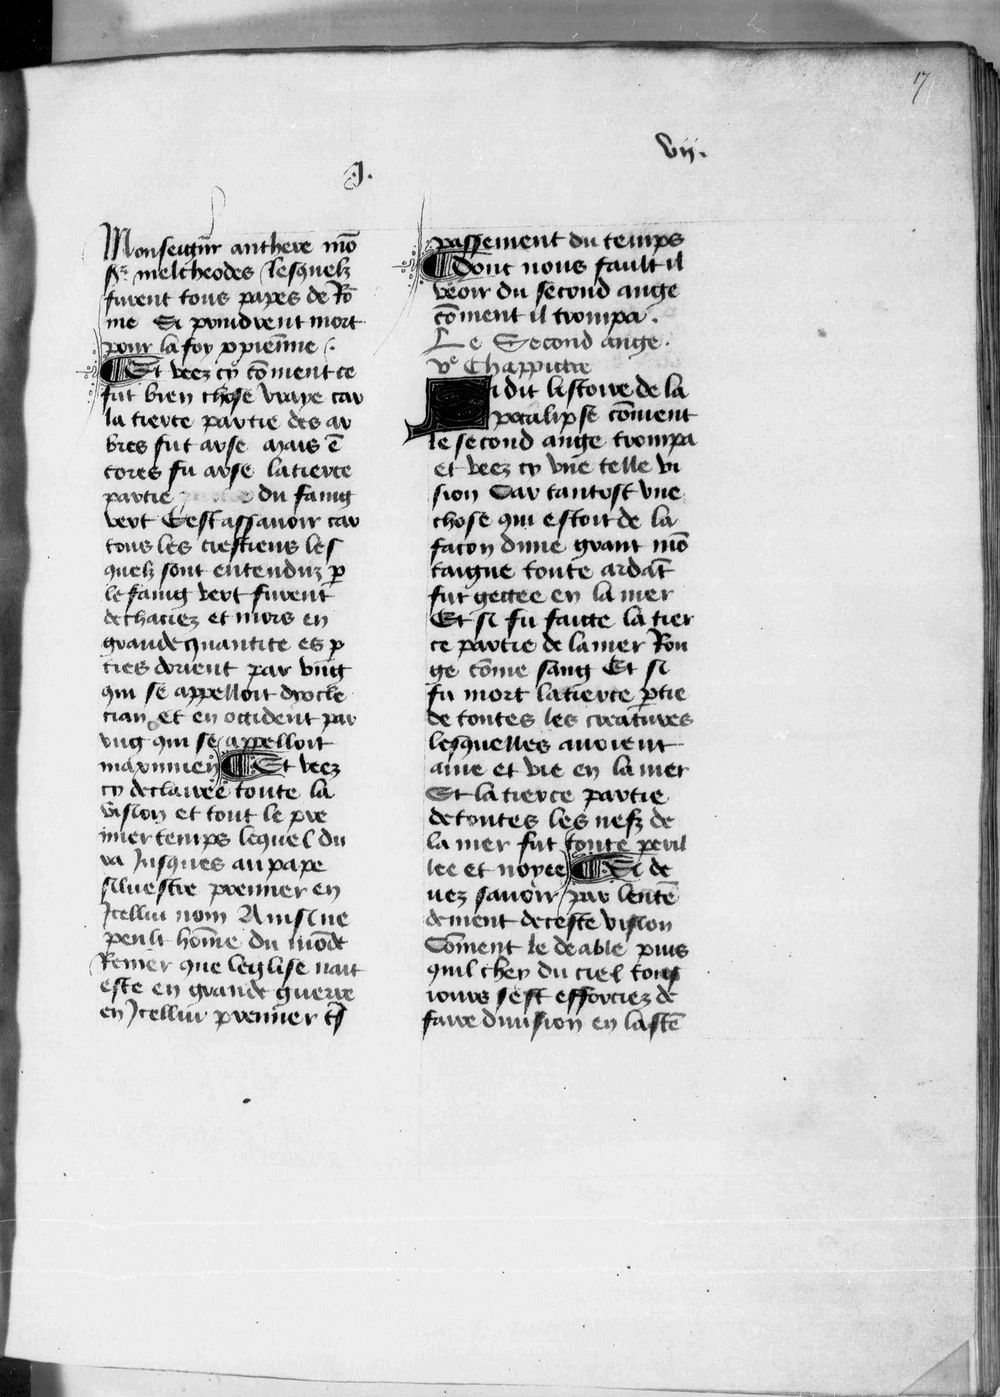 17
vij.
J.
Monseigñr anthere mõ
sr melcheodes lesquelz
furent tous papes de Rõ
me Si prindrent mort
pour la foy xpiẽnne
¶ Et veez cy cõment ce
fut bien chose vraye car
la tierce partie des ar
bres fut arse mais ẽ
cores fu arse la tierce
partie du faing
vert Cest assauoir car
tous les crestiens les
quelz sont entenduz p
le faing vert furent
dechaciez et mors en
grande quantite es p
ties dorient par vng
qui se appelloit diocle
cian et en occident par
vng qui se appelloit
maximien ¶ Et veez
cy declairee toute la
vision et tout le pre
mier temps lequel du
ra Jusques au pape
siluestre premier en
Jcellui nom Ainsi ne
peult hõme du mõde
Renier que leglise nait
este en grande guerre
en Jcellui premier tẽs
passement du temps
¶ Dont nous fault il
veoir du second ange
cõment il trompa.
Le Second ange.
ve Chappitre
Si dit listoire de la
pocalipse cõment
le second ange trompa
et veez cy vne telle vi
sion Car tantost vne
chose qui estoit de la
facon dune grant mõ
taigne toute ardãt
fut gectee en la mer
Et si fu faicte la tier
ce partie de la mer Rou
ge cõme sang Et si
fu mort la tierce ptie
de toutes les creatures
lesquelles auoient
ame et vie en la mer
Et la tierce partie
de toutes les nefz de
la mer fut toute peril
lee et noyee ¶ Si de
uez sauoir par lentẽ
dement de ceste vision
Cõment le deable puis
quil chey du ciel tous
iours sest efforciez de
faire diuision en lastẽ